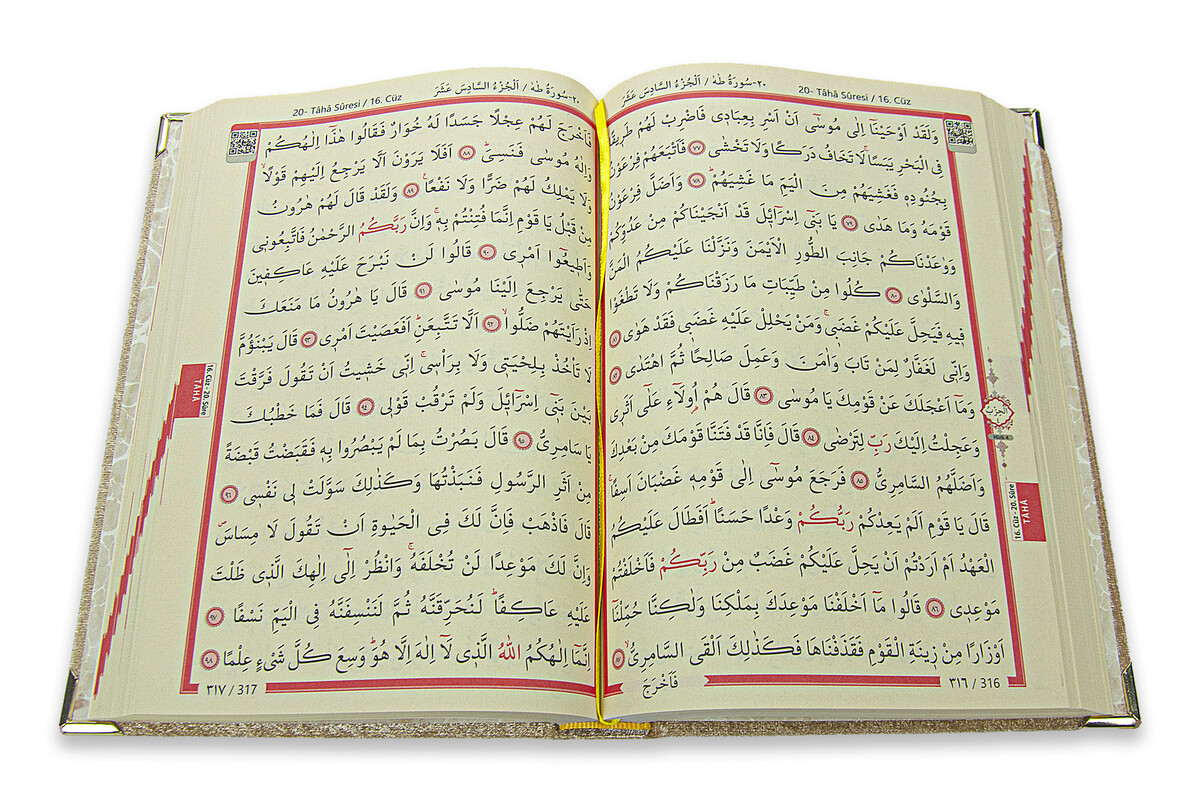 ٢٠-سُورَةُ طٰهٰ / اَلْجُزْءُ السَّادِسَ عَشَرَ
20- Tâhâ Sûresi / 16. Cüz
وَلَقَدْ اَوْحَيْنَٓا اِلٰى مُوسٰٓى اَنْ اَسْرِ بِعِبَادِى فَاضْرِبْ لَهُمْ طَرِيقًا
فِى الْبَحْرِ يَبَسًاۙ لَا تَخَافُ دَرَكًا وَلَا تَخْشٰى ﴿٧٧﴾ فَاَتْبَعَهُمْ فِرْعَوْنُ
بِجُنُودِه۪ فَغَشِيَهُمْ مِنَ الْيَمِّ مَا غَشِيَهُمْۜ ﴿٧٨﴾ وَاَضَلَّ فِرْعَوْنُ
قَوْمَهُ وَمَا هَدٰى ﴿٧٩﴾ يَا بَن۪ٓى اِسْرَٓائ۪لَ قَدْ اَنْجَيْنَاكُمْ مِنْ عَدُوِّكُمْ
وَوٰعَدْنَاكُمْ جَانِبَ الطُّورِ الْاَيْمَنَ وَنَزَّلْنَا عَلَيْكُمُ الْمَنَّ
وَالسَّلْوٰى ﴿٨٠﴾ كُلُوا مِنْ طَيِّبَاتِ مَا رَزَقْنَاكُمْ وَلَا تَطْغَوْا
ف۪يهِ فَيَحِلَّ عَلَيْكُمْ غَضَب۪ىۚ وَمَنْ يَحْلِلْ عَلَيْهِ غَضَب۪ى فَقَدْ هَوٰى ﴿٨١﴾
وَاِنّ۪ى لَغَفَّارٌ لِمَنْ تَابَ وَاٰمَنَ وَعَمِلَ صَالِحًا ثُمَّ اهْتَدٰى ﴿٨٢﴾
وَمَٓا اَعْجَلَكَ عَنْ قَوْمِكَ يَا مُوسٰى ﴿٨٣﴾ قَالَ هُمْ اُو۬لَٓاءِ عَلٰٓى اَثَر۪ى
وَعَجِلْتُ اِلَيْكَ رَبِّ لِتَرْضٰى ﴿٨٤﴾ قَالَ فَاِنَّا قَدْ فَتَنَّا قَوْمَكَ مِنْ بَعْدِكَ
وَاَضَلَّهُمُ السَّامِرِىُّ ﴿٨٥﴾ فَرَجَعَ مُوسٰٓى اِلٰى قَوْمِه۪ غَضْبَانَ اَسِفًاۚ
قَالَ يَا قَوْمِ اَلَمْ يَعِدْكُمْ رَبُّكُمْ وَعْدًا حَسَنًاۜ اَفَطَالَ عَلَيْكُمُ
الْعَهْدُ اَمْ اَرَدْتُمْ اَنْ يَحِلَّ عَلَيْكُمْ غَضَبٌ مِنْ رَبِّكُمْ فَاَخْلَفْتُمْ
مَوْعِد۪ى ﴿٨٦﴾ قَالُوا مَٓا اَخْلَفْنَا مَوْعِدَكَ بِمَلْكِنَا وَلٰكِنَّا حُمِّلْنَٓا
اَوْزَارًا مِنْ ز۪ينَةِ الْقَوْمِ فَقَذَفْنَاهَا فَكَذٰلِكَ اَلْقَى السَّامِرِىُّۙ ﴿٨٧﴾
فَاَخْرَجَ
٣١٦ / 316
الْحِزْبُ
Hizb 4
16. Cüz - 20. Sûre
TÂHÂ
٢٠-سُورَةُ طٰهٰ / اَلْجُزْءُ السَّادِسَ عَشَرَ
20- Tâhâ Sûresi / 16. Cüz
فَاَخْرَجَ لَهُمْ عِجْلًا جَسَدًا لَهُ خُوَارٌ فَقَالُوا هٰذَٓا اِلٰهُكُمْ
وَاِلٰهُ مُوسٰى فَنَسِىَۜ ﴿٨٨﴾ اَفَلَا يَرَوْنَ اَلَّا يَرْجِعُ اِلَيْهِمْ قَوْلًاۙ
وَلَا يَمْلِكُ لَهُمْ ضَرًّا وَلَا نَفْعًا۟ ﴿٨٩﴾ وَلَقَدْ قَالَ لَهُمْ هٰرُونُ
مِنْ قَبْلُ يَا قَوْمِ اِنَّمَا فُتِنْتُمْ بِه۪ۚ وَاِنَّ رَبَّكُمُ الرَّحْمٰنُ فَاتَّبِعُون۪ى
وَاَط۪يعُٓوا اَمْر۪ى ﴿٩٠﴾ قَالُوا لَنْ نَبْرَحَ عَلَيْهِ عَاكِف۪ينَ
حَتّٰى يَرْجِعَ اِلَيْنَا مُوسٰى ﴿٩١﴾ قَالَ يَا هٰرُونُ مَا مَنَعَكَ
اِذْ رَاَيْتَهُمْ ضَلُّٓواۙ ﴿٩٢﴾ اَلَّا تَتَّبِعَنِۜ اَفَعَصَيْتَ اَمْر۪ى ﴿٩٣﴾ قَالَ يَبْنَؤُ۬مَّ
لَا تَأْخُذْ بِلِحْيَت۪ى وَلَا بِرَأْس۪ىۚ اِنّ۪ى خَش۪يتُ اَنْ تَقُولَ فَرَّقْتَ
بَيْنَ بَن۪ٓى اِسْرَٓائ۪لَ وَلَمْ تَرْقُبْ قَوْل۪ى ﴿٩٤﴾ قَالَ فَمَا خَطْبُكَ
يَا سَامِرِىُّ ﴿٩٥﴾ قَالَ بَصُرْتُ بِمَا لَمْ يَبْصُرُوا بِه۪ فَقَبَضْتُ قَبْضَةً
مِنْ اَثَرِ الرَّسُولِ فَنَبَذْتُهَا وَكَذٰلِكَ سَوَّلَتْ ل۪ى نَفْس۪ى ﴿٩٦﴾
قَالَ فَاذْهَبْ فَاِنَّ لَكَ فِى الْحَيٰوةِ اَنْ تَقُولَ لَا مِسَاسَۖ
وَاِنَّ لَكَ مَوْعِدًا لَنْ تُخْلَفَهُۚ وَانْظُرْ اِلٰٓى اِلٰهِكَ الَّذ۪ى ظَلْتَ
عَلَيْهِ عَاكِفًاۜ لَنُحَرِّقَنَّهُ ثُمَّ لَنَنْسِفَنَّهُ فِى الْيَمِّ نَسْفًا ﴿٩٧﴾
اِنَّمَٓا اِلٰهُكُمُ اللّٰهُ الَّذ۪ى لَٓا اِلٰهَ اِلَّا هُوَۜ وَسِعَ كُلَّ شَىْءٍ عِلْمًا ﴿٩٨﴾
٣١٧ / 317
16. Cüz - 20. Sûre
TÂHÂ